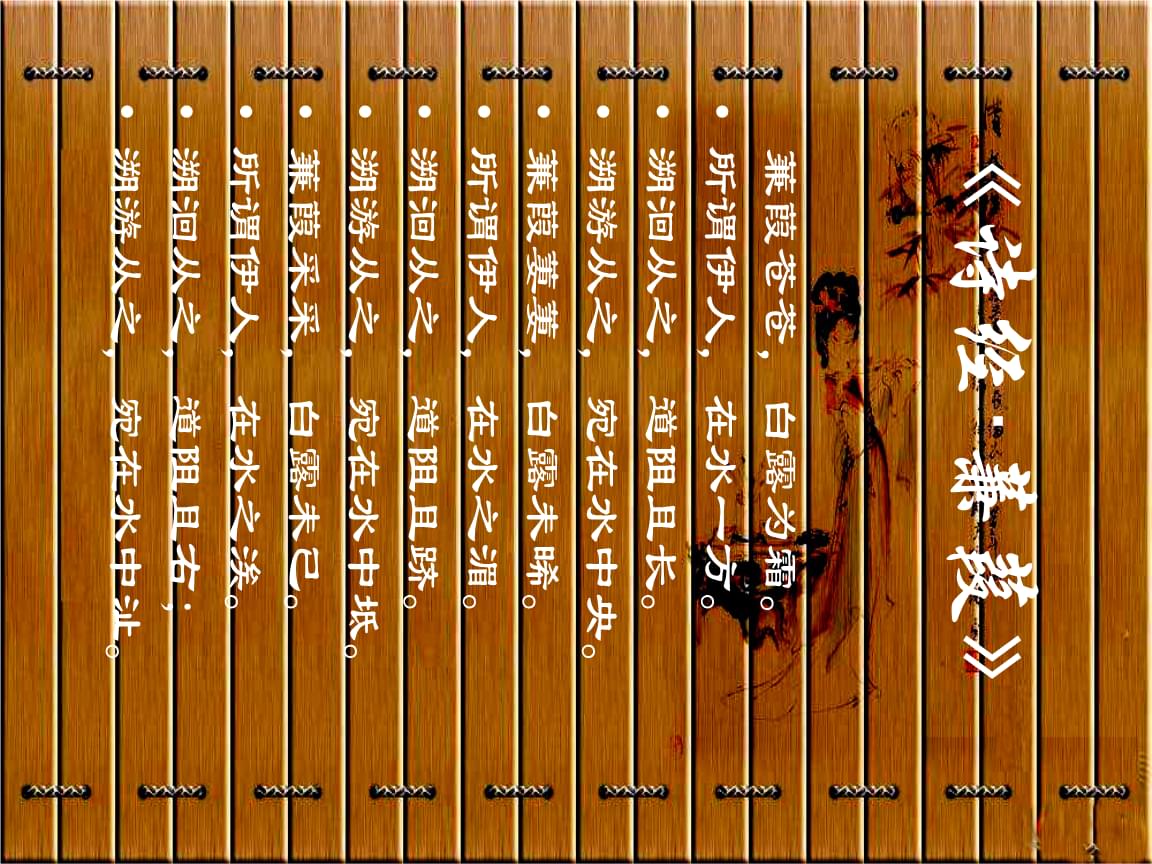 《诗经·蒹葭》
蒹葭苍苍，白露为霜。
• 所谓伊人，在水一方。
• 溯洄从之，道阻且长。
• 溯游从之，宛在水中央。
• 蒹葭萋萋，白露未晞。
• 所谓伊人，在水之湄。
• 溯洄从之，道阻且跻。
• 溯游从之，宛在水中坻。
• 蒹葭采采，白露未已。
• 所谓伊人，在水之涘。
• 溯洄从之，道阻且右；
• 溯游从之，宛在水中沚。